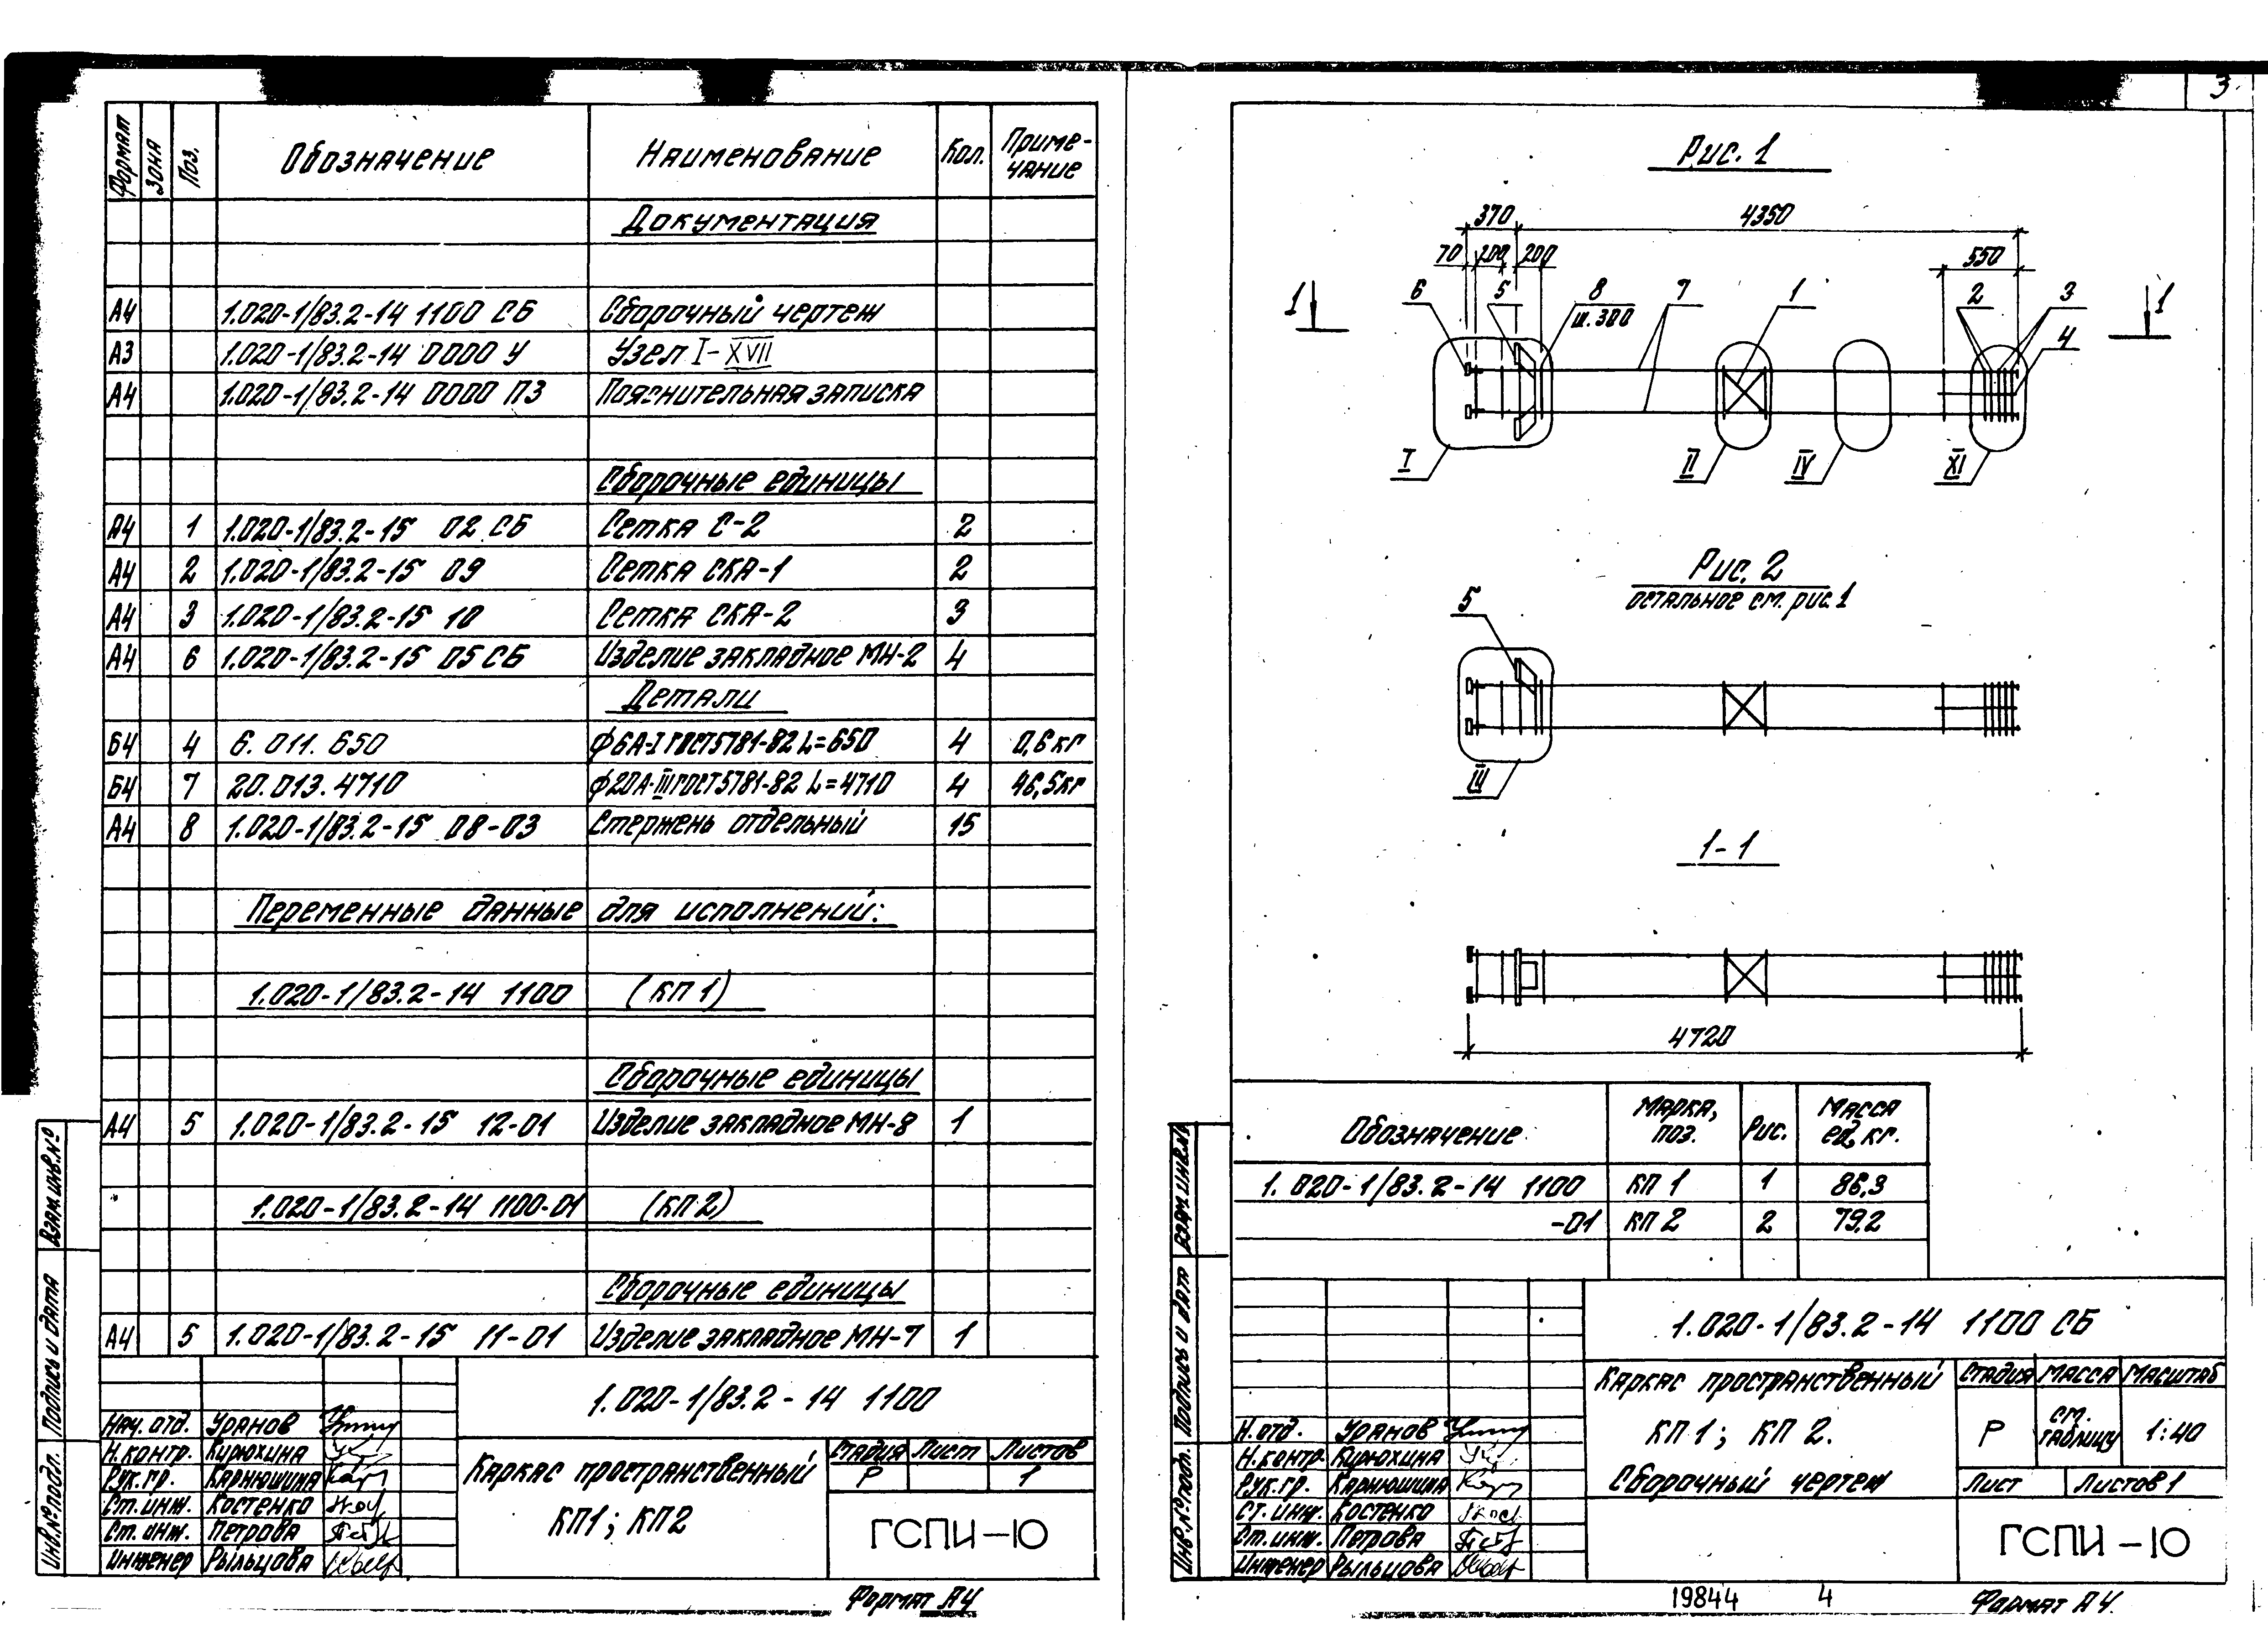 Формат Зона Поз. Обозначение Наименование Кол. Приме-
чание
Документация
А4 1.020-1/83.2-14 1100 СБ Сборочный чертеж
А3 1.020-1/83.2-14 0000 У Узел I-XVII
А4 1.020-1/83.2-14 0000 ПЗ Пояснительная записка
Сборочные единицы
А4 1 1.020-1/83.2-15 02 СБ Сетка С-2 2
А4 2 1.020-1/83.2-15 09 Сетка СКА-1 2
А4 3 1.020-1/83.2-15 10 Сетка СКА-2 3
А4 6 1.020-1/83.2-15 05 СБ Изделие закладное МН-2 4
Детали
Б4 4 6. 011. 650 ϕ6А-I ГОСТ5781-82 L=650 4 0,6 кг
Б4 7 20. 013. 4710 ϕ20А-III ГОСТ5781-82 L=4710 4 46,5кг
А4 8 1.020-1/83.2-15 08-03 Стержень отдельный 15
Переменные данные для исполнений:
1.020-1/83.2-14 1100 (КП 1)
Сборочные единицы
А4 5 1.020-1/83.2-15 12-01 Изделие закладное МН-8 1
1.020-1/83.2-14 1100-01 (КП 2)
Сборочные единицы
А4 5 1.020-1/83.2-15 11-01 Изделие закладное МН-7 1
Взам.инв.№
Подпись и дата
Инв.№подл.
1.020-1/83.2-14 1100
Нач. отд. Уранов
Н.контр. Кирюхина
Рук.гр. Карнюшина
Ст.инж. Костенко
Ст.инж. Петрова
Инженер Рыльцова
Каркас пространственный
КП1; КП2
Стадия Лист Листов
Р 1
ГСПИ-10
Формат А4
3
Рис. 1
370 4350
70 200 200 550
1 6 5 8 7 1 2 3 1
ш. 300
4
I II IV XI
Рис. 2
остальное см. рис. 1
5
III
1-1
4720
Обозначение Марка,
поз. Рис. Масса
ед, кг.
1.020-1/83.2-14 1100 КП 1 1 86,3
-01 КП 2 2 79,2
Взам.инв.№
Подпись и дата
Инв.№подл.
1.020-1/83.2-14 1100 СБ
Н.отд. Уранов
Н.контр. Кирюхина
Рук.гр. Карнюшина
Ст.инж. Костенко
Ст.инж. Петрова
Инженер Рыльцова
Каркас пространственный
КП 1; КП 2.
Сборочный чертеж
Стадия Масса Масштаб
Р см.
таблицу 1:40
Лист Листов 1
ГСПИ-10
19844 4
Формат А4.